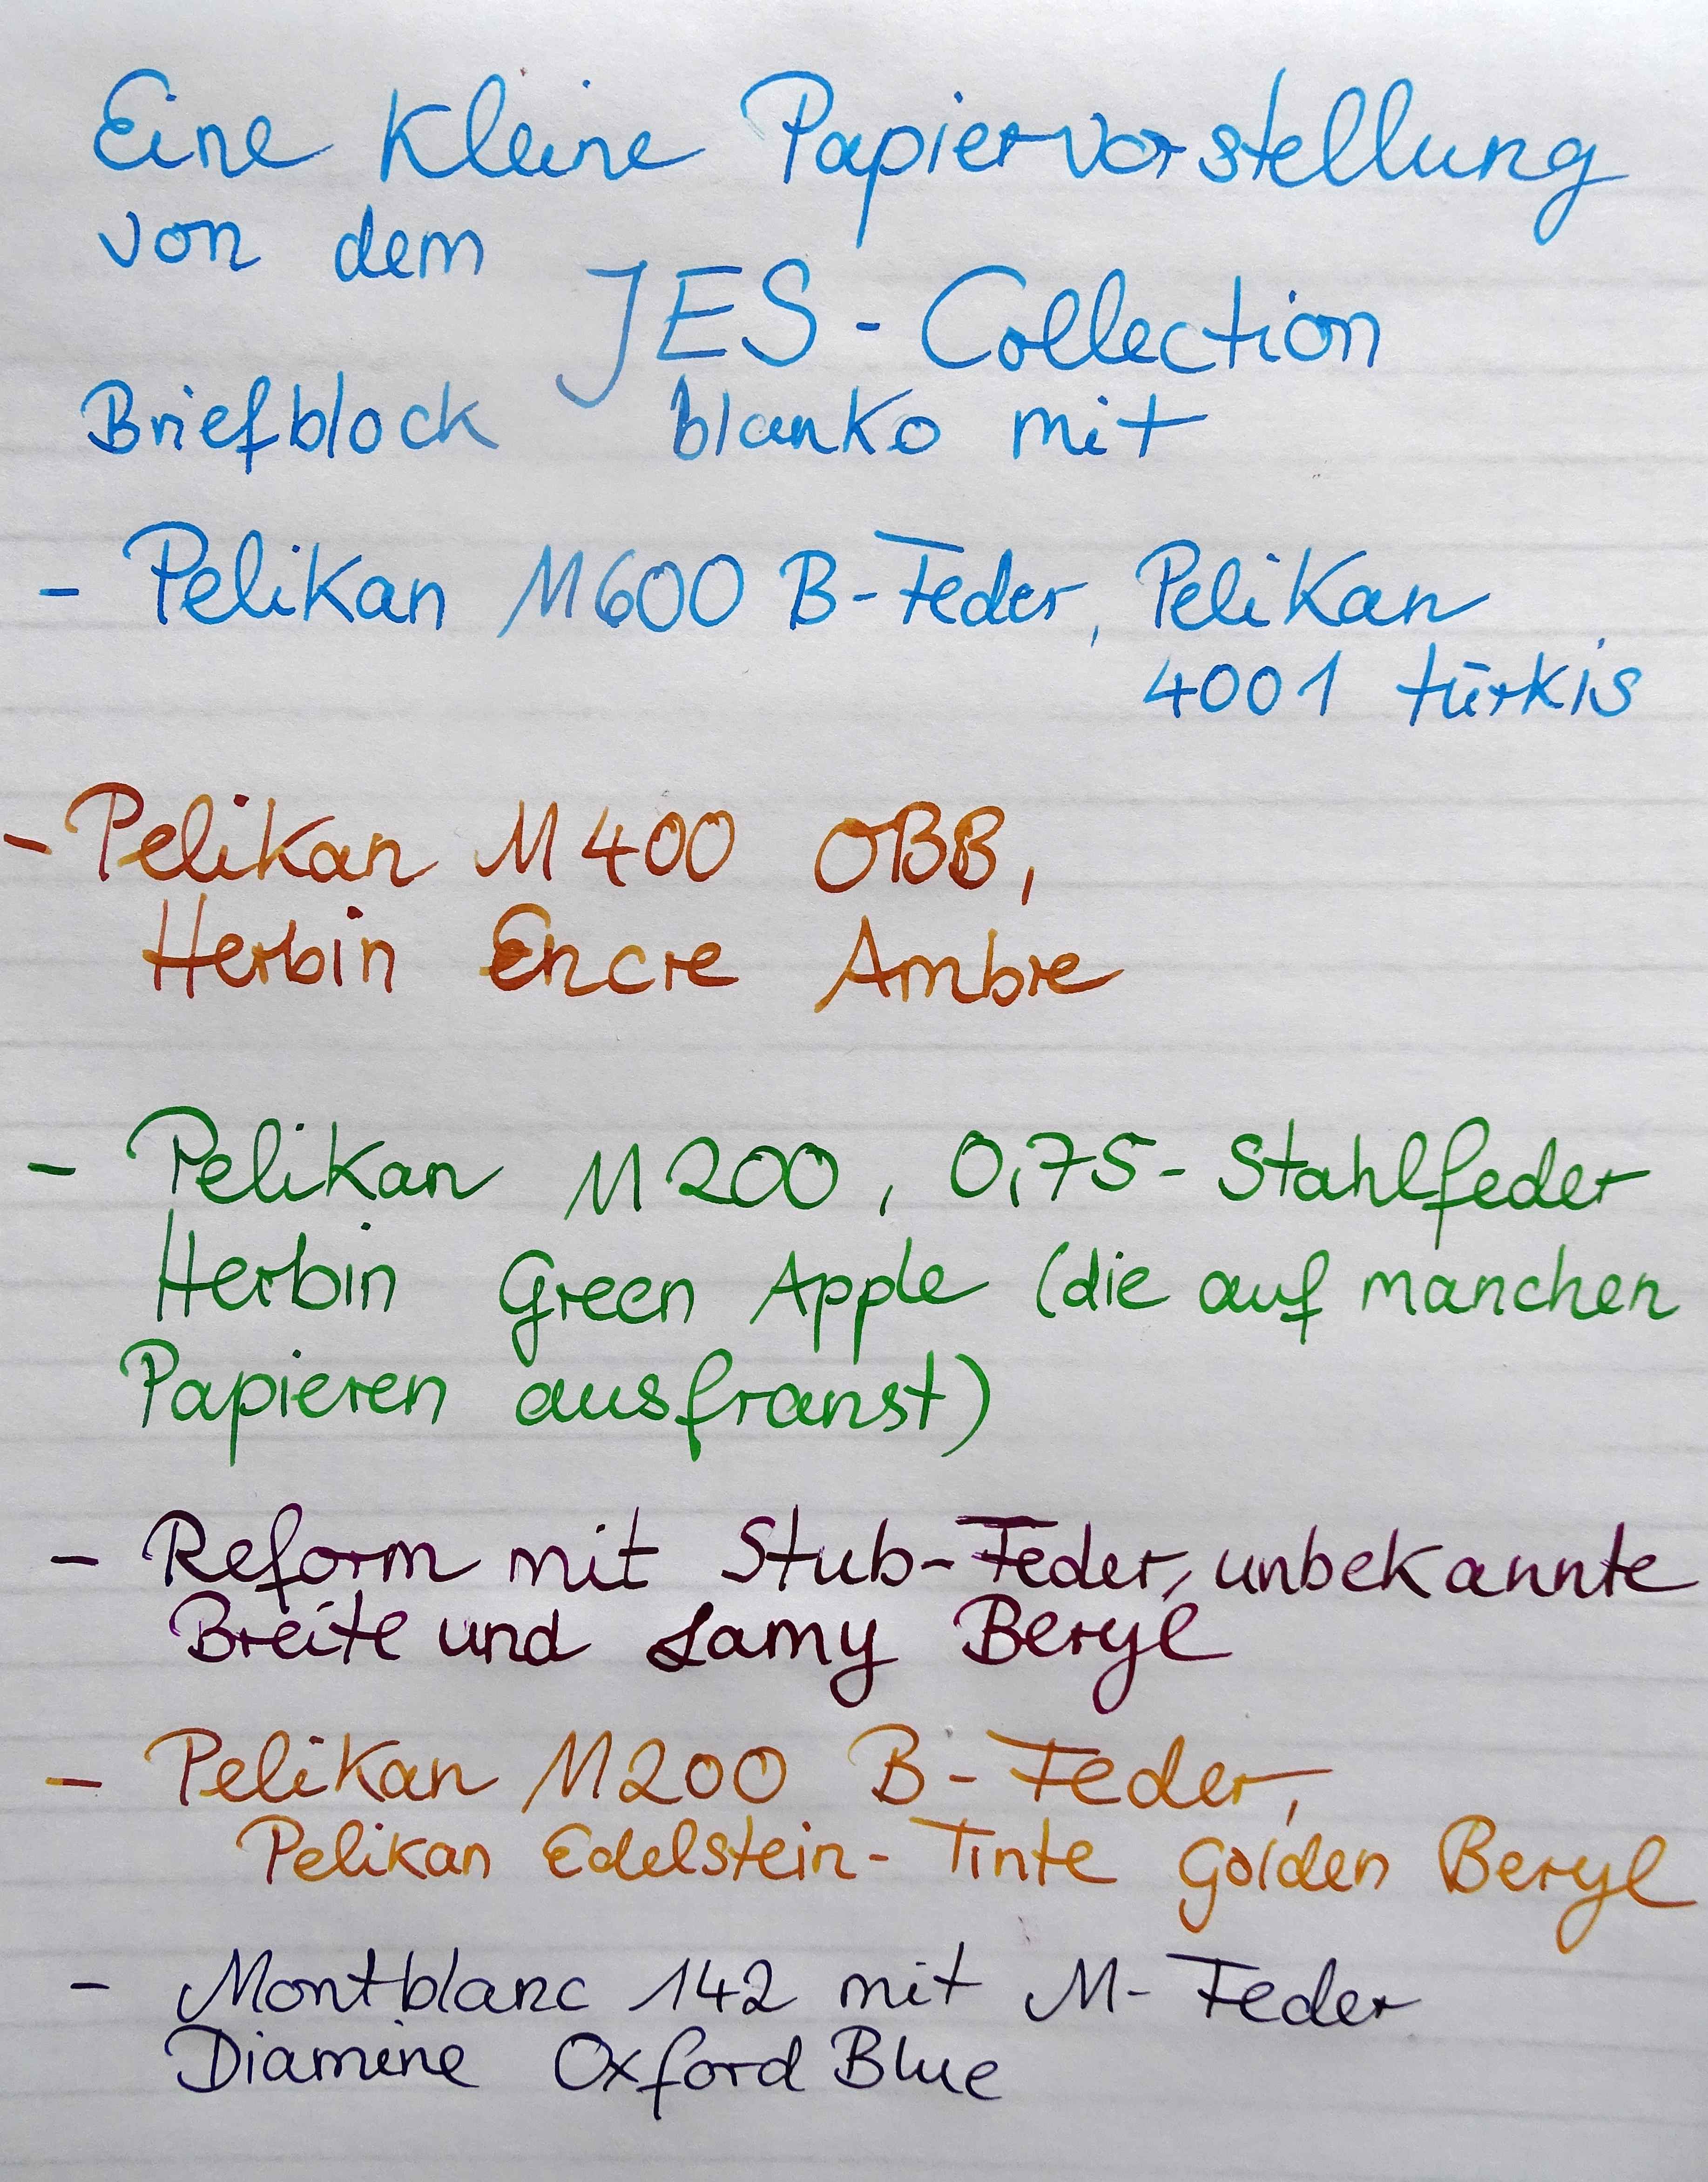 Eine kleine Papiervorstellung
von dem
JES-Collection
Briefblock blanko mit
- Pelikan M600 B-Feder, Pelikan
4001 türkis
- Pelikan M400 OBB,
Herbin Encre Ambre
- Pelikan M200, 0,75-Stahlfeder
Herbin Green Apple (die auf manchen
Papieren ausfranst)
- Reform mit Stub-Feder, unbekannte
Breite und Lamy Beryl
- Pelikan M200 B-Feder,
Pelikan Edelstein-Tinte Golden Beryl
- Montblanc 142 mit M-Feder
Diamine Oxford Blue